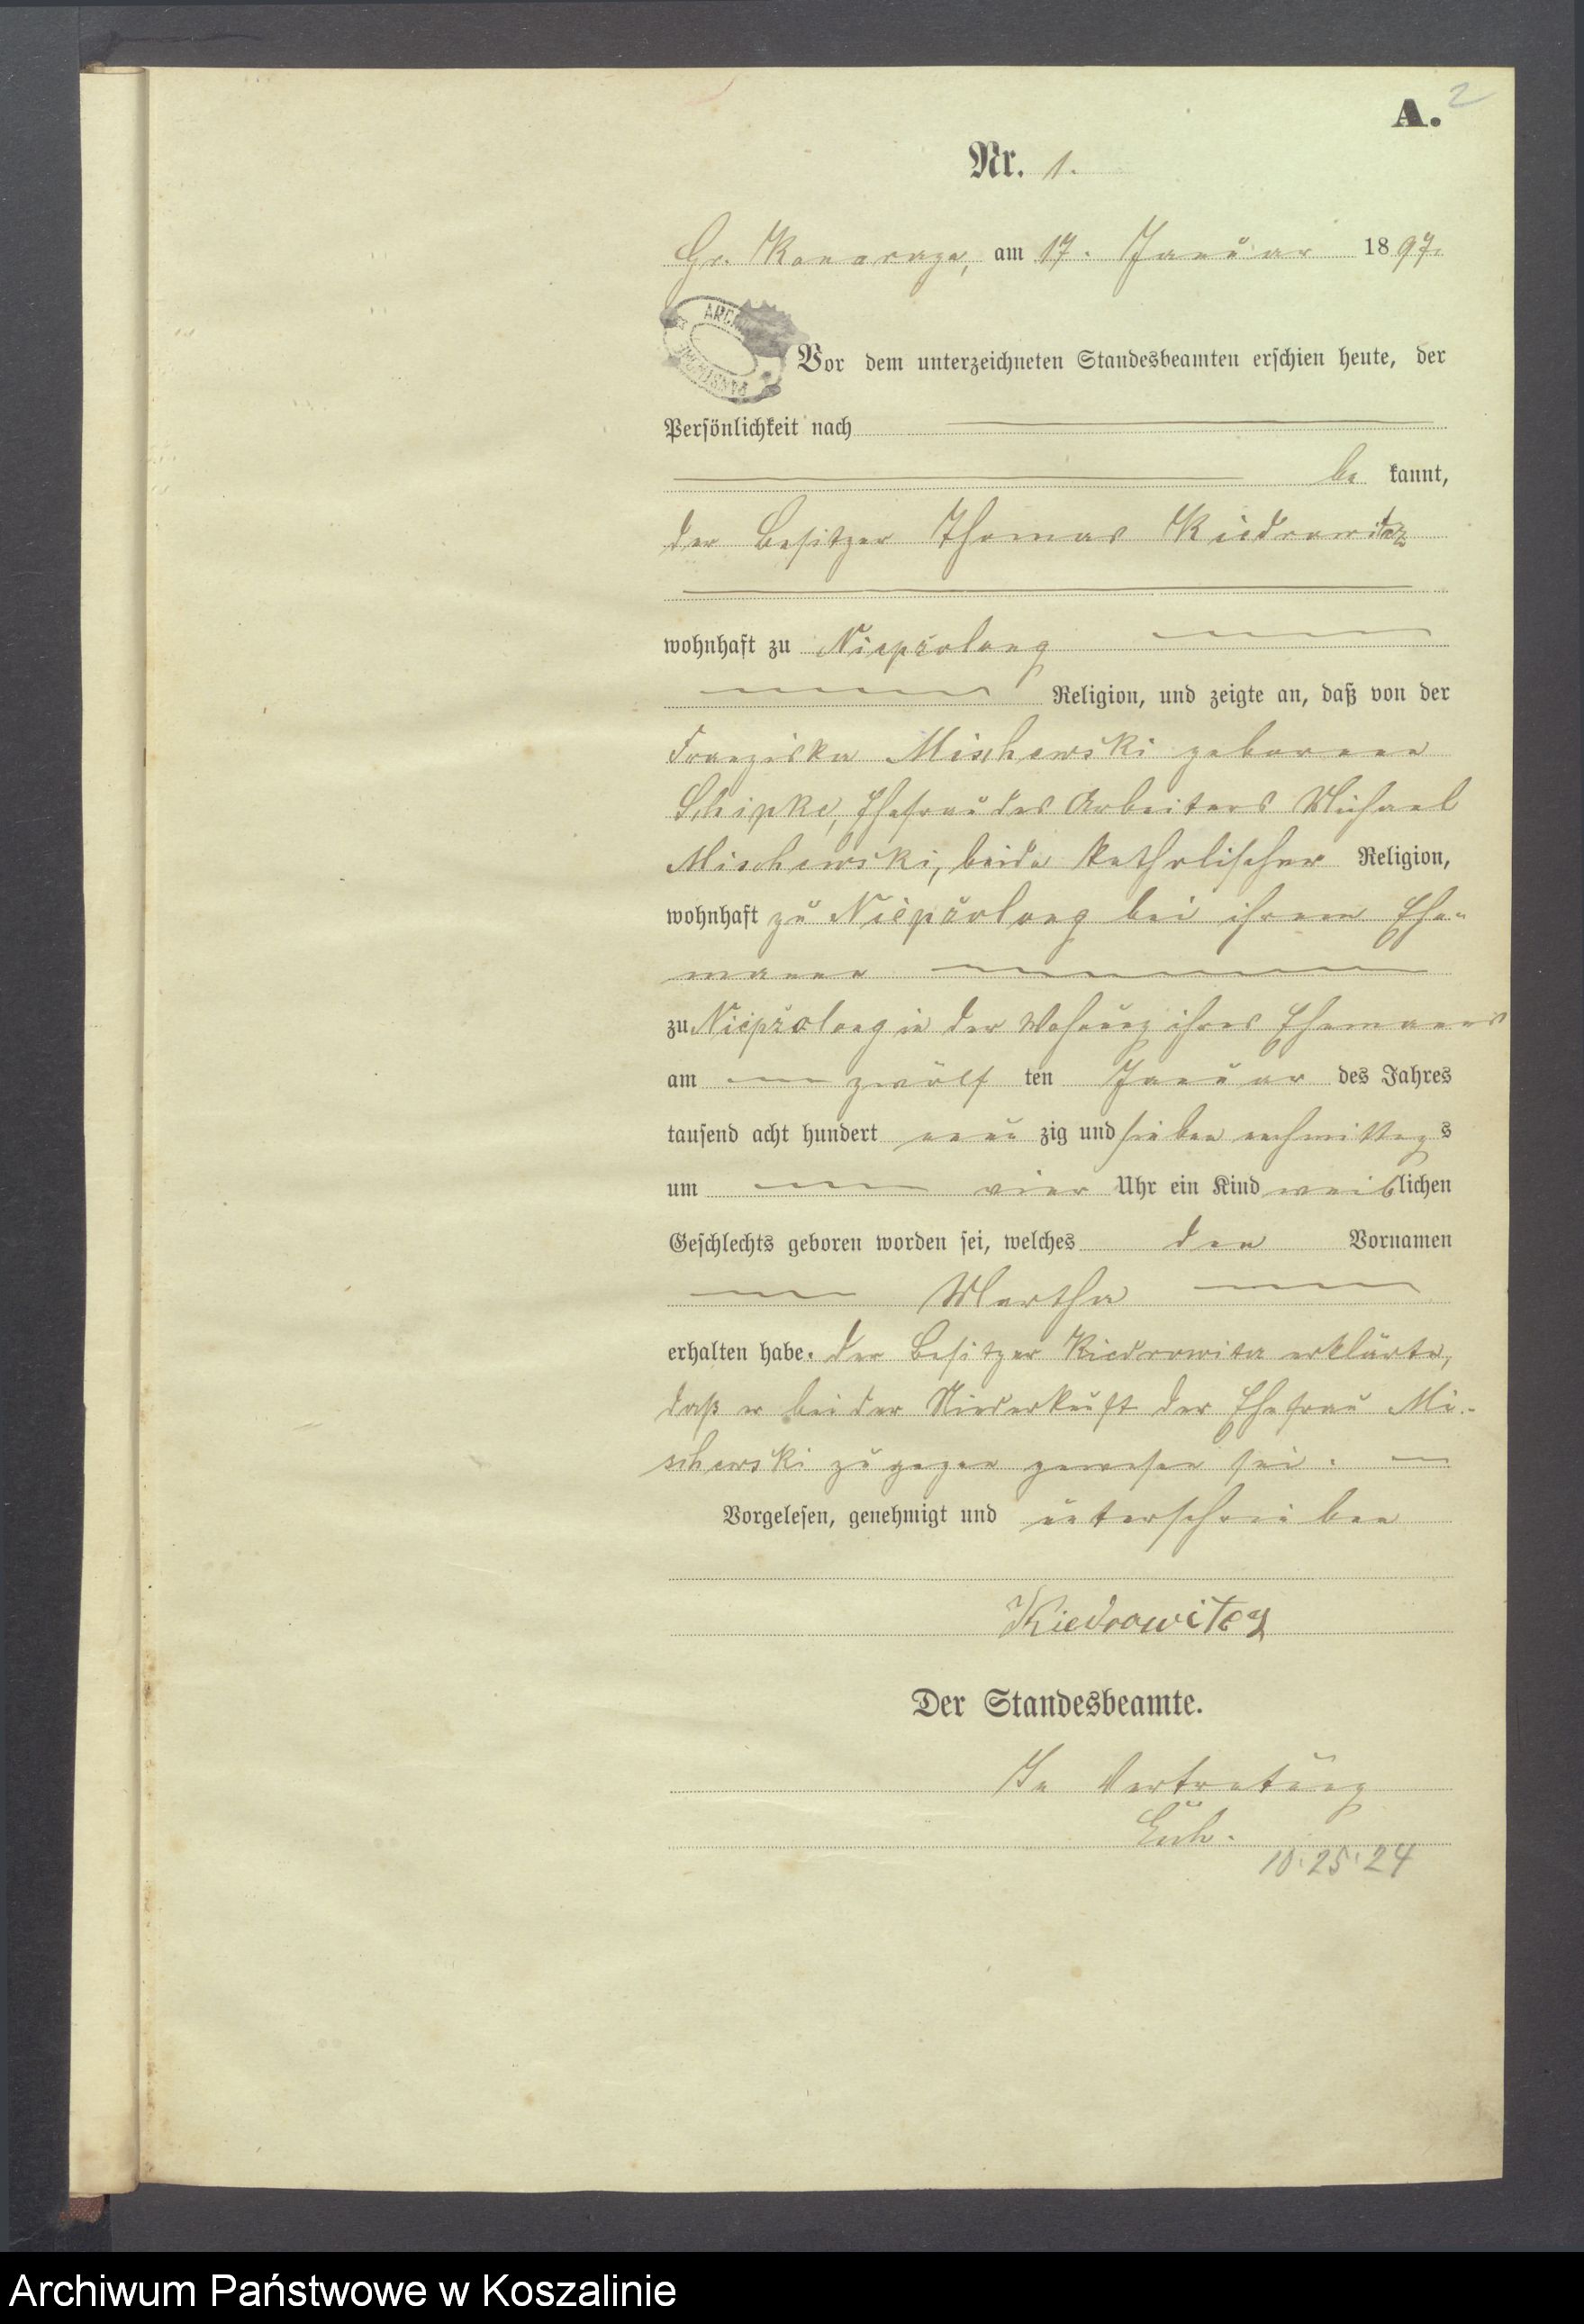 2
A.
Nr. 1.
Gr. Konarzyn, am 17. Januar 1897.
Vor dem unterzeichneten Standesbeamten erschien heute, der
Persönlichkeit nach
be kannt,
der Besitzer Thomas Kiedrowicz
wohnhaft zu Nieprzolong
Religion, und zeigte an, daß von der
Franziska Mischewski geborenen
Schipke, Ehefrau des Arbeiters Michael
Mischewski, beide katholischer Religion,
wohnhaft zu Nieprzolong bei ihrem Ehe-
mann
zu Nieprzolong in der Wohnung ihres Ehemannes
am zwölf ten Januar des Jahres
tausend acht hundert neun zig und sieben nachmittag s
um vier Uhr ein Kind weiblichen
Geschlechts geboren worden sei, welches den Vornamen
Martha
erhalten habe. Der Besitzer erklärte,
daß er bei der Niederkunft der Ehefrau Mi-
schewski zugegen gewesen sei.
Vorgelesen, genehmigt und unterschrieben
Kiedrowitcz
Der Standesbeamte.
In Vertretung
10:25:24
Archiwum Państwowe w Koszalinie